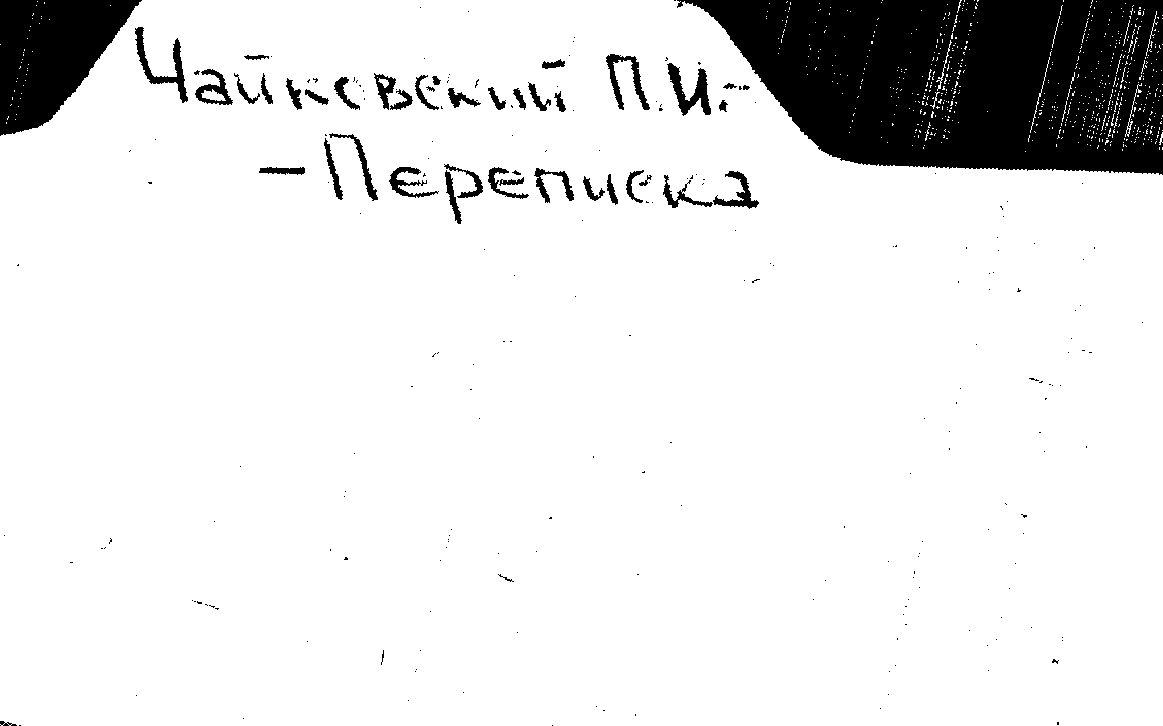 Чайковский П.И.-
- Переписка